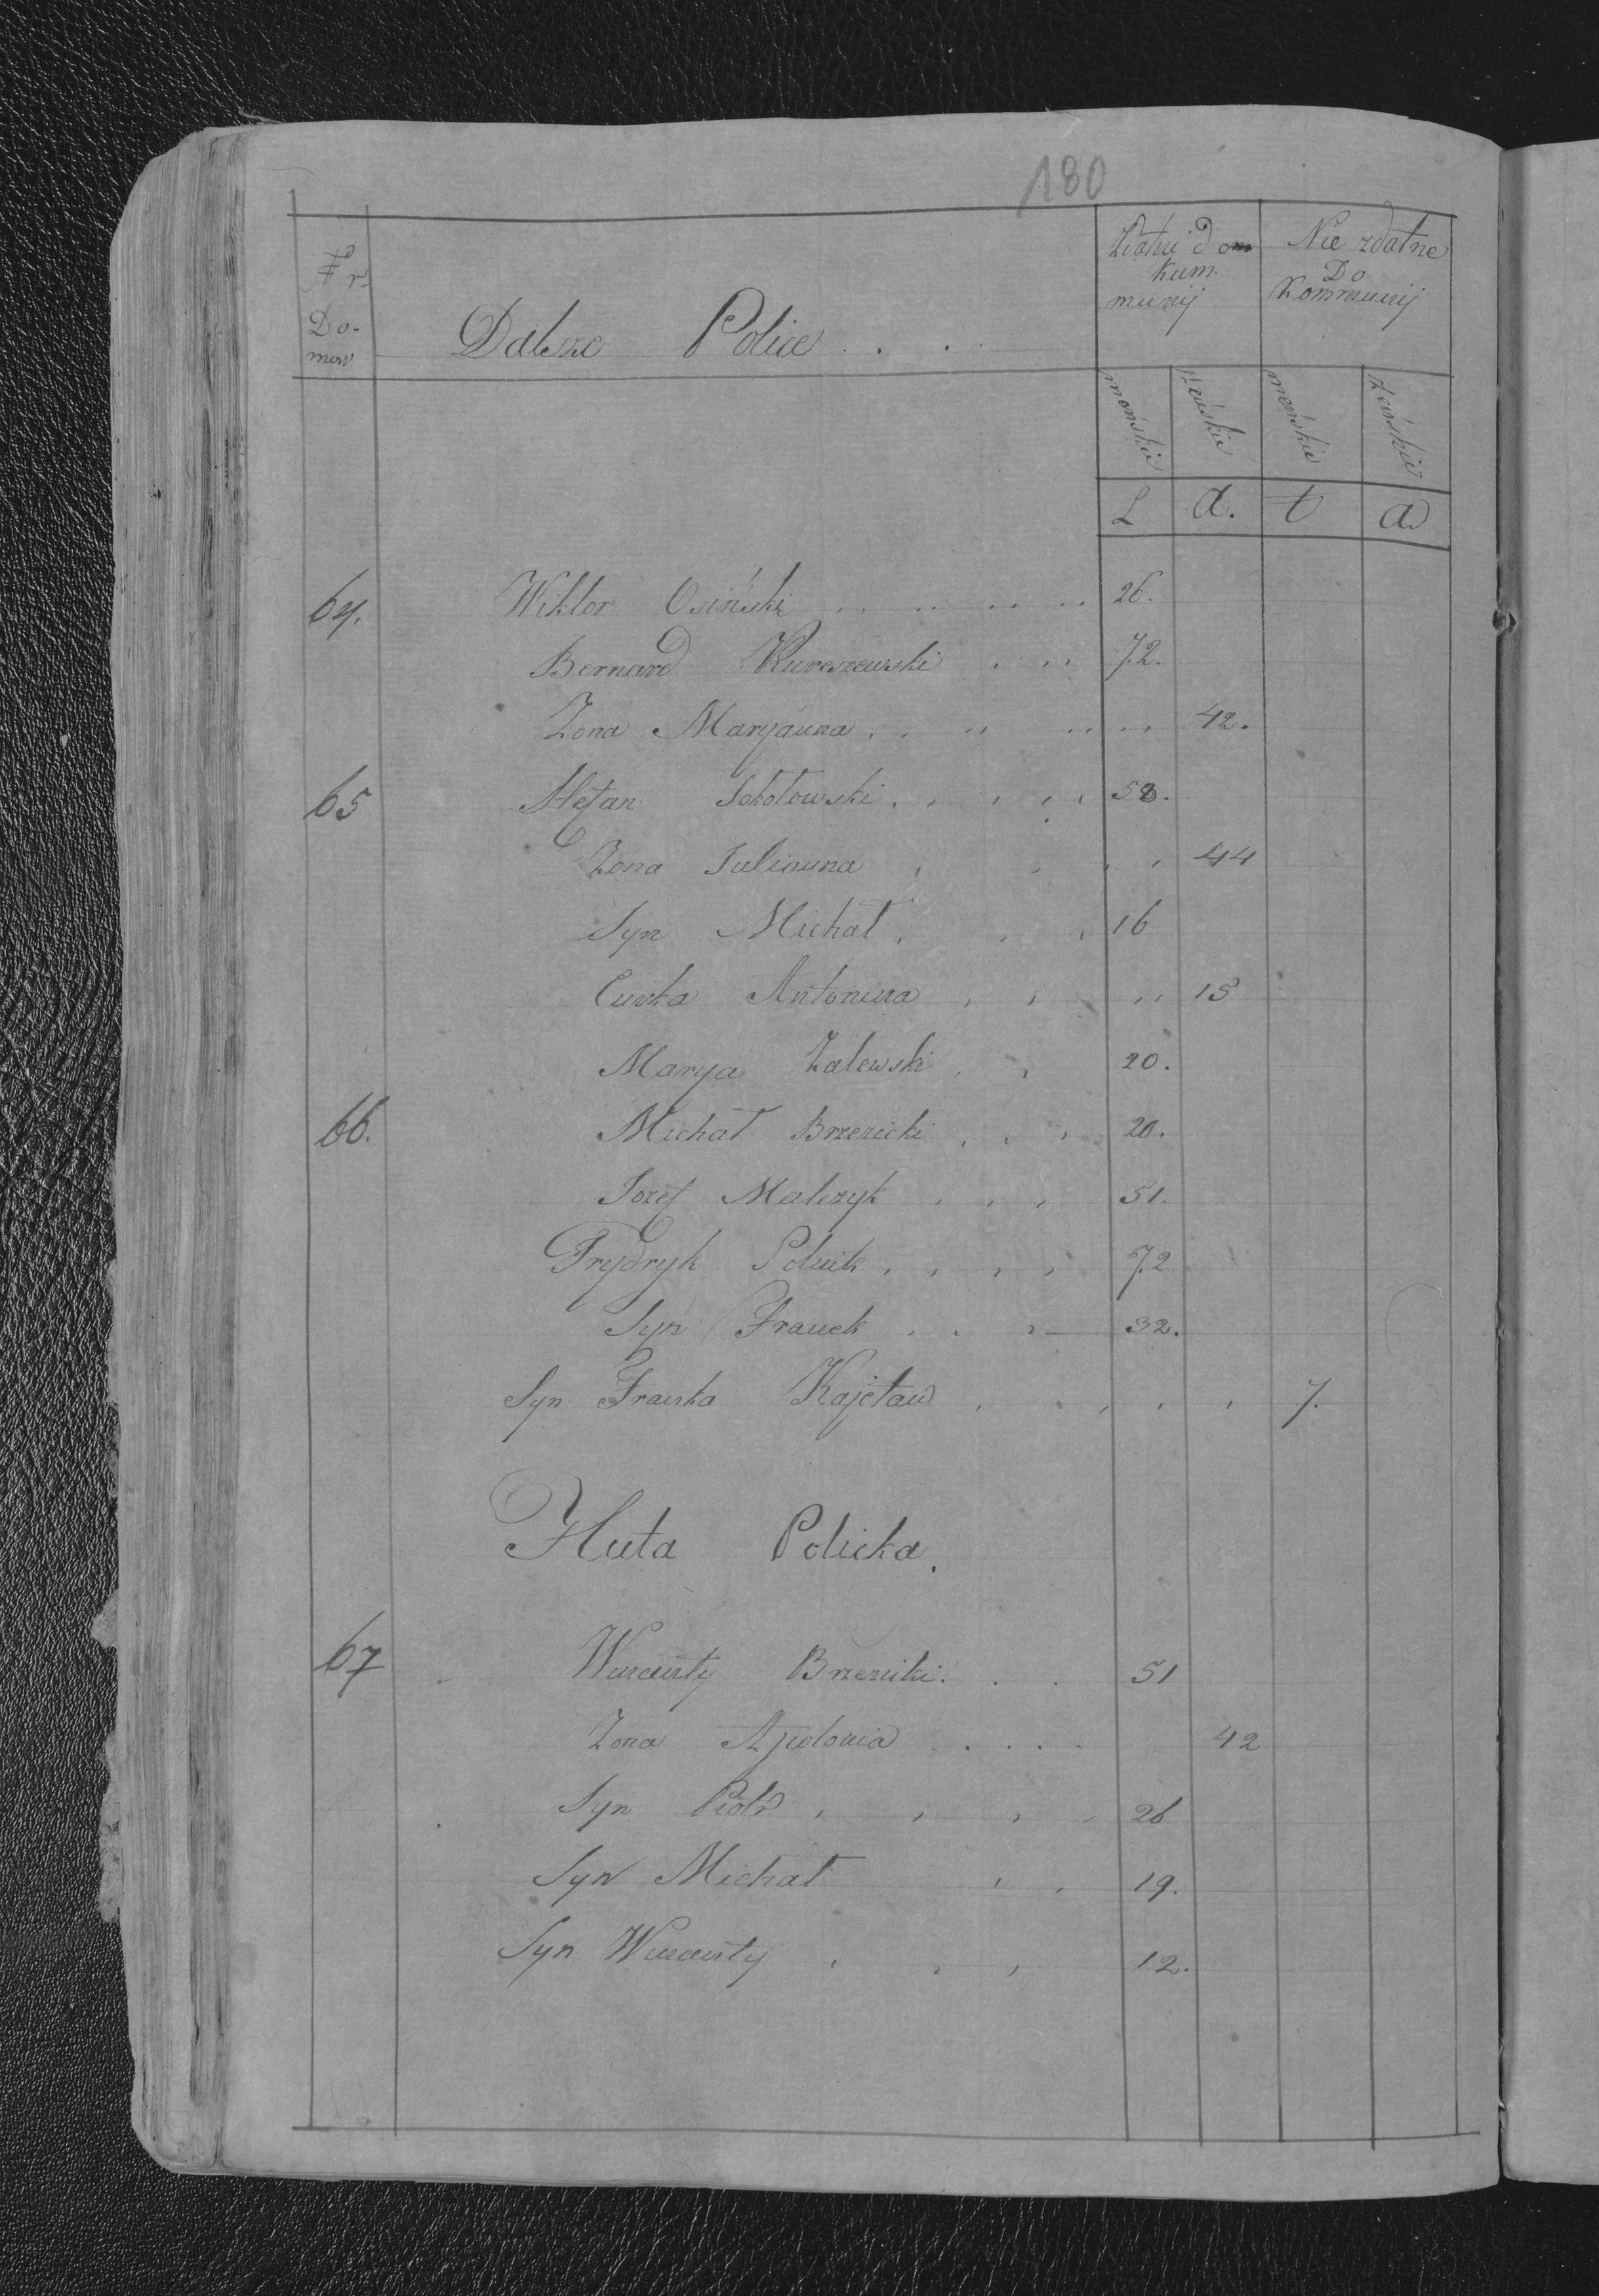 180
Nr Do- mow
Dalsze Police . . .
Zdatni do kum- munij
Nie zdatne Do Kommunij
męskie żeńskie męskie żeńskie
L a. t a.
64. Wiktor Osiński 26.
Bernard 72.
Zona Maryanna 42.
65 Sokołowski 58.
Zona Julianna 44
Syn Michał 16
Curka Antonina 15
Marya Zalewski 20.
66. Michał Brzezicki 20.
Jozef Malczyk 51.
Frydryk Polnik 72
Syn Franek 32.
Syn Franka Kajetan 7.
Huta Policka.
67 Wincenty Brzezicki 51
Zona Apolonia 42
Syn Piotr 26
Syn Michał 19.
Syn Wincenty 12.